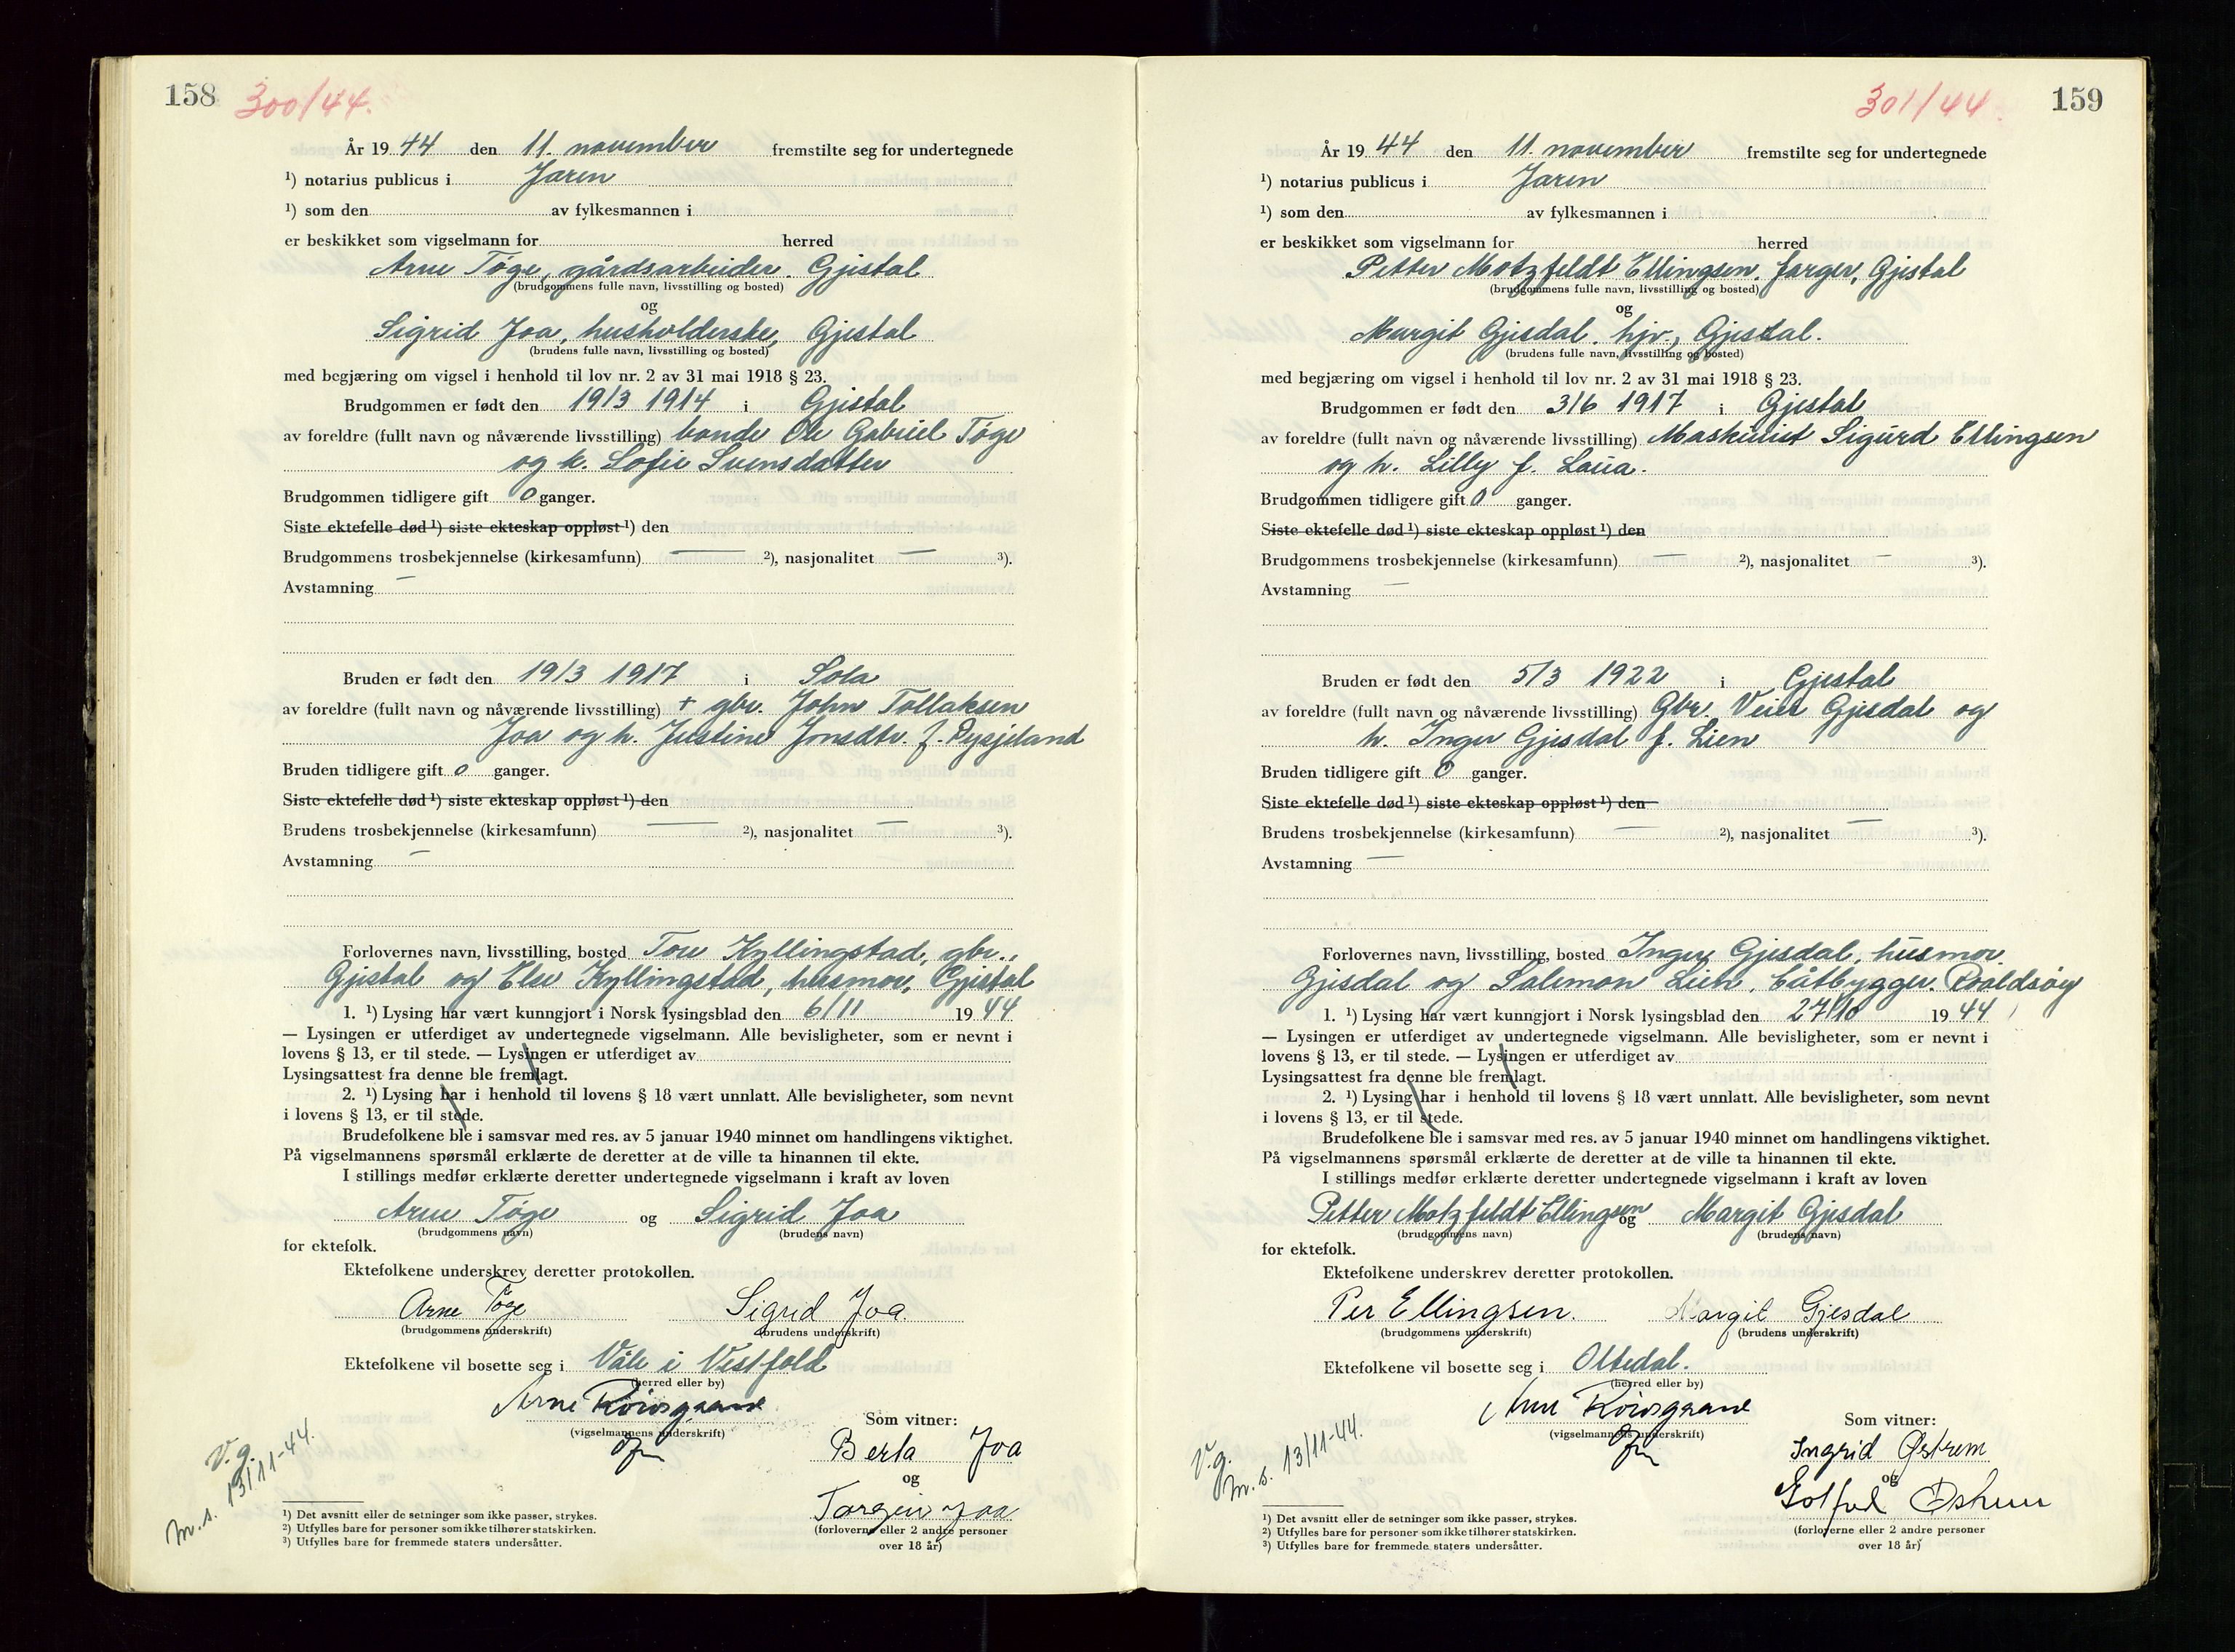 158 300/44.
År 19 44 den 11. november fremstilte seg for undertegnede
¹) notarius publicus i Jæren
¹) som den av fylkesmannen i
er beskikket som vigselmann for herred
Arne Tøge, gårdsarbeider. Gjestal
(brudgommens fulle navn, livsstilling og bosted)
og
Sigrid Joa, husholderske, Gjestal
(brudens fulle navn, livsstilling og bosted)
med begjæring om vigsel i henhold til lov nr. 2 av 31 mai 1918 § 23.
Brudgommen er født den 19/3 1914 i Gjestal
av foreldre (fullt navn og nåværende livsstilling) bonde Ole Gabriel Tøge
og h. Sofie Svensdatter
Brudgommen tidligere gift 0 ganger.
Siste ektefelle død ¹) siste ekteskap oppløst ¹) den
Brudgommens trosbekjennelse (kirkesamfunn) — ²), nasjonalitet — ³).
Avstamning —
Bruden er født den 19/3 1917 i Sola
av foreldre (fullt navn og nåværende livsstilling) + gbr. John Tollaksen
Joa og h. Justine Jonsdtr. f. Dysjeland
Bruden tidligere gift 0 ganger.
Siste ektefelle død ¹) siste ekteskap oppløst ¹) den
Brudens trosbekjennelse (kirkesamfunn) — ²), nasjonalitet — ³).
Avstamning —
Forlovernes navn, livsstilling, bosted Tore Kyllingstad, gbr.,
Gjestal og Else Kyllingstad, husmor, Gjestal
1. ¹) Lysing har vært kunngjort i Norsk lysingsblad den 6/11 19 44
— Lysingen er utferdiget av undertegnede vigselmann. Alle bevisligheter, som er nevnt i
lovens § 13, er til stede. — Lysingen er utferdiget av
Lysingsattest fra denne ble fremlagt.
2. ¹) Lysing har i henhold til lovens § 18 vært unnlatt. Alle bevisligheter, som nevnt
i lovens § 13, er til stede.
Brudefolkene ble i samsvar med res. av 5 januar 1940 minnet om handlingens viktighet.
På vigselmannens spørsmål erklærte de deretter at de ville ta hinannen til ekte.
I stillings medfør erklærte deretter undertegnede vigselmann i kraft av loven
Arne Tøge og Sigrid Joa
(brudgommens navn) (brudens navn)
for ektefolk.
Ektefolkene underskrev deretter protokollen.
Arne Tøge Sigrid Joa.
(brudgommens underskrift) (brudens underskrift)
Ektefolkene vil bosette seg i Våle i Vestfold
(herred eller by)
Arne
(vigselmannens underskrift)
Som vitner:
Berta Joa
og
Torgeir Joa
(forloverne eller 2 andre personer
over 18 år)
V.g.
m.s. 13/11-44.
¹) Det avsnitt eller de setninger som ikke passer, strykes.
²) Utfylles bare for personer som ikke tilhører statskirken.
³) Utfylles bare for fremmede staters undersåtter.
301/44. 159
År 19 44 den 11. november fremstilte seg for undertegnede
¹) notarius publicus i Jæren
¹) som den av fylkesmannen i
er beskikket som vigselmann for herred
Petter Motzfeldt Ellingsen, farger, Gjestal
(brudgommens fulle navn, livsstilling og bosted)
og
Margit Gjesdal, hjv., Gjestal.
(brudens fulle navn, livsstilling og bosted)
med begjæring om vigsel i henhold til lov nr. 2 av 31 mai 1918 § 23.
Brudgommen er født den 3/6 1917 i Gjestal
av foreldre (fullt navn og nåværende livsstilling) Maskinist Sigurd Ellingsen
og h. Lilly f. Laua.
Brudgommen tidligere gift 0 ganger.
Siste ektefelle død ¹) siste ekteskap oppløst ¹) den
Brudgommens trosbekjennelse (kirkesamfunn) — ²), nasjonalitet — ³).
Avstamning —
Bruden er født den 5/3 1922 i Gjestal
av foreldre (fullt navn og nåværende livsstilling) Gbr. Gjesdal og
h. Inger Gjesdal f. Lien
Bruden tidligere gift 0 ganger.
Siste ektefelle død ¹) siste ekteskap oppløst ¹) den
Brudens trosbekjennelse (kirkesamfunn) — ²), nasjonalitet — ³).
Avstamning —
Forlovernes navn, livsstilling, bosted Inger Gjesdal, husmor.
Gjesdal og Salemon Lien, båtbygger. Roaldsøy
1. ¹) Lysing har vært kunngjort i Norsk lysingsblad den 27/10 19 44
— Lysingen er utferdiget av undertegnede vigselmann. Alle bevisligheter, som er nevnt i
lovens § 13, er til stede. — Lysingen er utferdiget av
Lysingsattest fra denne ble fremlagt.
2. ¹) Lysing har i henhold til lovens § 18 vært unnlatt. Alle bevisligheter, som nevnt
i lovens § 13, er til stede.
Brudefolkene ble i samsvar med res. av 5 januar 1940 minnet om handlingens viktighet.
På vigselmannens spørsmål erklærte de deretter at de ville ta hinannen til ekte.
I stillings medfør erklærte deretter undertegnede vigselmann i kraft av loven
Petter Motzfeldt Ellingsen og Margit Gjesdal
(brudgommens navn) (brudens navn)
for ektefolk.
Ektefolkene underskrev deretter protokollen.
Per Ellingsen. Margit Gjesdal
(brudgommens underskrift) (brudens underskrift)
Ektefolkene vil bosette seg i Oltedal.
(herred eller by)
Arne
(vigselmannens underskrift)
Som vitner:
Ingrid Østrem
og
(forloverne eller 2 andre personer
over 18 år)
V.g.
m.s. 13/11-44.
¹) Det avsnitt eller de setninger som ikke passer, strykes.
²) Utfylles bare for personer som ikke tilhører statskirken.
³) Utfylles bare for fremmede staters undersåtter.